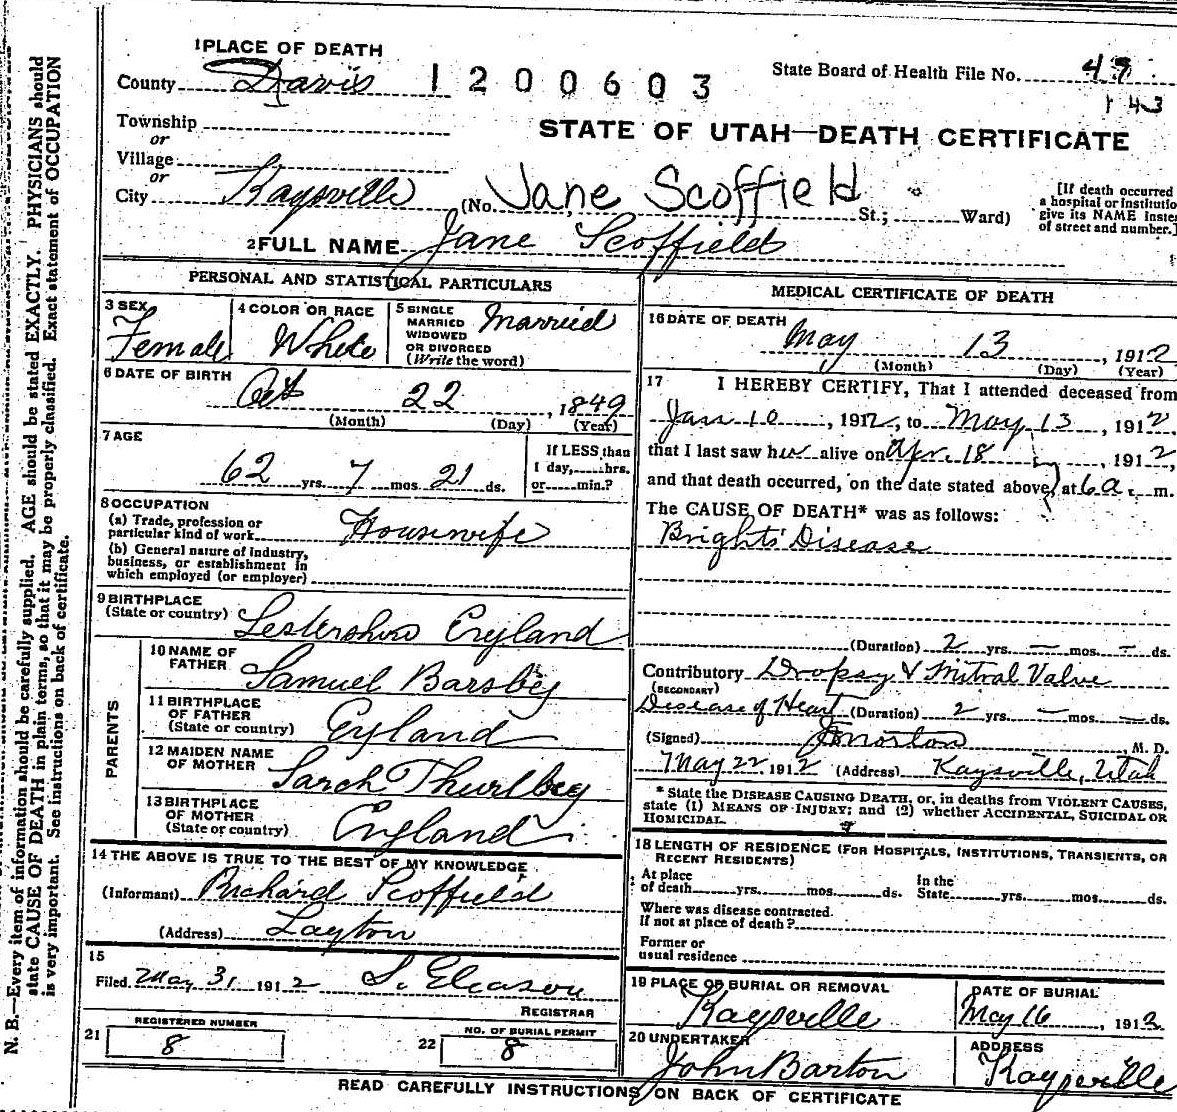 N. B.—Every item of information should be carefully supplied. AGE should be stated EXACTLY. PHYSICIANS should
state CAUSE OF DEATH in plain terms, so that it may be properly classified. Exact statement of OCCUPATION
is very important. See instructions on back of certificate.
1 PLACE OF DEATH
County Davis
1200603
State Board of Health File No. 49
143
Township
or
Village
or
City Kaysville
STATE OF UTAH—DEATH CERTIFICATE
(No. Jane Scoffield St.; Ward)
[If death occurred
a hospital or institutio
give its NAME inste
of street and number.]
2 FULL NAME Jane Scoffield
PERSONAL AND STATISTICAL PARTICULARS
3 SEX
Female
4 COLOR OR RACE
White
5 SINGLE
MARRIED
WIDOWED
OR DIVORCED
(Write the word)
Married
6 DATE OF BIRTH
Oct 22, 1849
(Month) (Day) (Year)
7 AGE
62 yrs. 7 mos. 21 ds.
If LESS than
1 day, hrs.
or min.?
8 OCCUPATION
(a) Trade, profession or
particular kind of work Housewife
(b) General nature of industry,
business, or establishment in
which employed (or employer)
9 BIRTHPLACE
(State or country) Lestershire England
PARENTS
10 NAME OF
FATHER Samuel Barsbey
11 BIRTHPLACE
OF FATHER
(State or country) England
12 MAIDEN NAME
OF MOTHER Sarah Thurlbey
13 BIRTHPLACE
OF MOTHER
(State or country) England
14 THE ABOVE IS TRUE TO THE BEST OF MY KNOWLEDGE
(Informant) Richard Scoffield
(Address) Layton
15
Filed May 31 1912 S. Gleason
REGISTRAR
21 REGISTERED NUMBER
8
22 NO. OF BURIAL PERMIT
8
MEDICAL CERTIFICATE OF DEATH
16 DATE OF DEATH
May 13, 1912
(Month) (Day) (Year)
17 I HEREBY CERTIFY, That I attended deceased from
Jan 10, 1912, to May 13, 1912,
that I last saw her alive on Apr. 18, 1912,
and that death occurred, on the date stated above, at 6 a. m.
The CAUSE OF DEATH* was as follows:
Brights Disease
(Duration) 2 yrs. — mos. — ds.
Contributory Dropsy & Mitral Valve
(SECONDARY)
Disease of Heart (Duration) 2 yrs. — mos. — ds.
(Signed) Morton, M. D.
May 22, 1912 (Address) Kaysville, Utah
* State the DISEASE CAUSING DEATH, or, in deaths from VIOLENT CAUSES,
state (1) MEANS OF INJURY; and (2) whether ACCIDENTAL, SUICIDAL OR
HOMICIDAL.
18 LENGTH OF RESIDENCE (FOR HOSPITALS, INSTITUTIONS, TRANSIENTS, OR
RECENT RESIDENTS)
At place
of death yrs. mos. ds.
In the
State yrs. mos. ds.
Where was disease contracted.
If not at place of death?
Former or
usual residence
19 PLACE OF BURIAL OR REMOVAL
Kaysville
DATE OF BURIAL
May 16, 1912
20 UNDERTAKER
John Barton
ADDRESS
Kaysville
READ CAREFULLY INSTRUCTIONS ON BACK OF CERTIFICATE